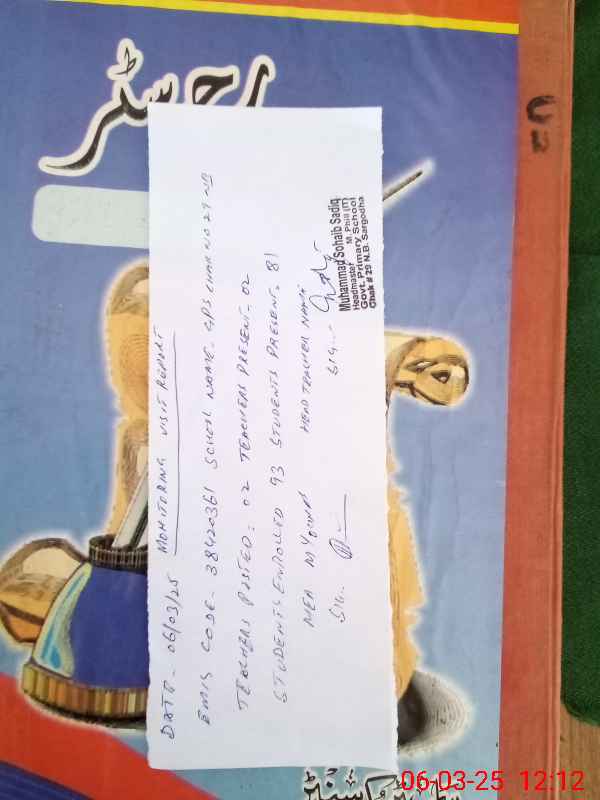 رجسٹر
DATE- 06/03/25 MONITORING VISIT REPORT
EMIS CODE- 38420361 SCHOOL NAME- GPS CHAK NO 29 NB
TEACHERS POSTED:- 02 TEACHERS PRESENT- 02
STUDENTS ENROLLED 93 STUDENTS PRESENT- 81
MEA M Younas HEAD TEACHER NAME
SIG.. SIG...
Muhammad Sohaib Sadiq
Headmaster M. Phill (IT)
Govt. Primary School
Chak # 29 N.B. Sargodha
06-03-25 12:12